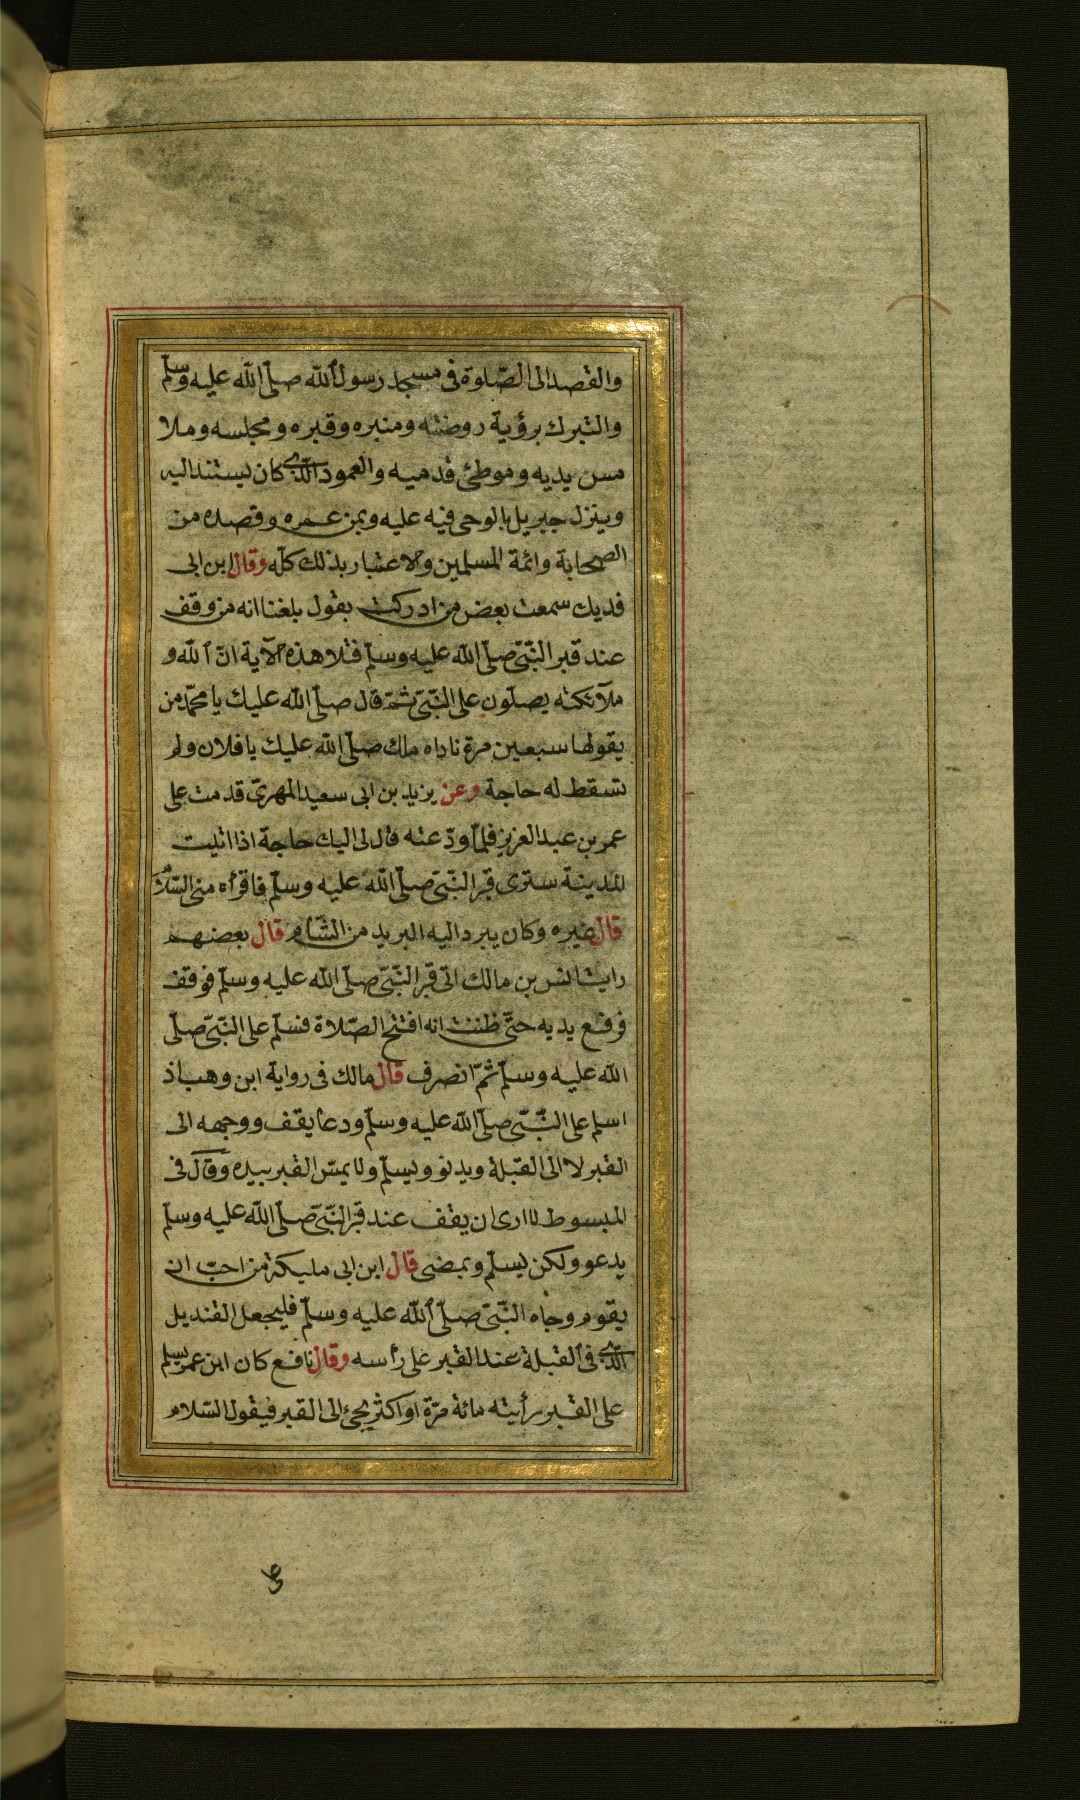 والقصد الى الصّلوة فى مسجد رسول الله صلّى الله عليه وسلّم
والتبرك برؤية روضته ومنبره وقبره ومجلسه وملا
مس يديه وموطئ قدميه والعمود الّذى كان يستند اليه
وينزل جبريل بالوحى فيه عليه وبمن عمره وقصده من
الصحابة وائمة المسلمين والاعتبار بذلك كلّه وقال ابن ابى
فديك سمعت بعض من ادركت يقول بلغنا انه من وقف
عند قبر النّبىّ صلّى الله عليه وسلّم فتلا هذه الآية انّ الله و
ملآئكته يصلّون على النّبىّ ثمّ قال صلّى الله عليك يا محمّد من
يقولها سبعين مرة ناداه ملك صلّى الله عليك يا فلان ولم
تسقط له حاجة وعن يزيد بن ابى سعيد المهرىّ قدمت على
عمر بن عبد العزيز فلمّا ودّعته قال لى اليك حاجة اذا اتيت
المدينة سترى قبر النّبىّ صلّى الله عليه وسلّم فاقرأه منى السّلام
قال غيره وكان يبرد اليه البريد من الشّام قال بعضهم
رايت انس بن مالك اتى قبر النّبىّ صلّى الله عليه وسلّم فوقف
فوقع يديه حتّى ظننت انه افتتح الصّلاة فسلّم على النّبىّ صلّى
الله عليه وسلّم ثمّ انصرف قال مالك فى رواية ابن وهب اذ
اسلم على النّبّى صلّى الله عليه وسلّم ودعا يقف ووجهه الى
القبر لا الى القبلة ويدنو ويسلّم ولا يمسّ القبر بيده وقال فى
المبسوط لا ارى ان يقف عند قبر النّبىّ صلّى الله عليه وسلّم
يدعو ولكن يسلّم ويمضى قال ابن ابى مليكة من احبّ ان
يقوم وجاه النّبىّ صلّى الله عليه وسلّم فليجعل القنديل
الّذى فى القبلة عند القبر على رأسه وقال نافع كان ابن عمر يسلم
على القبر رأيته مائة مرّة او اكثر يجئ الى القبر فيقول السّلام